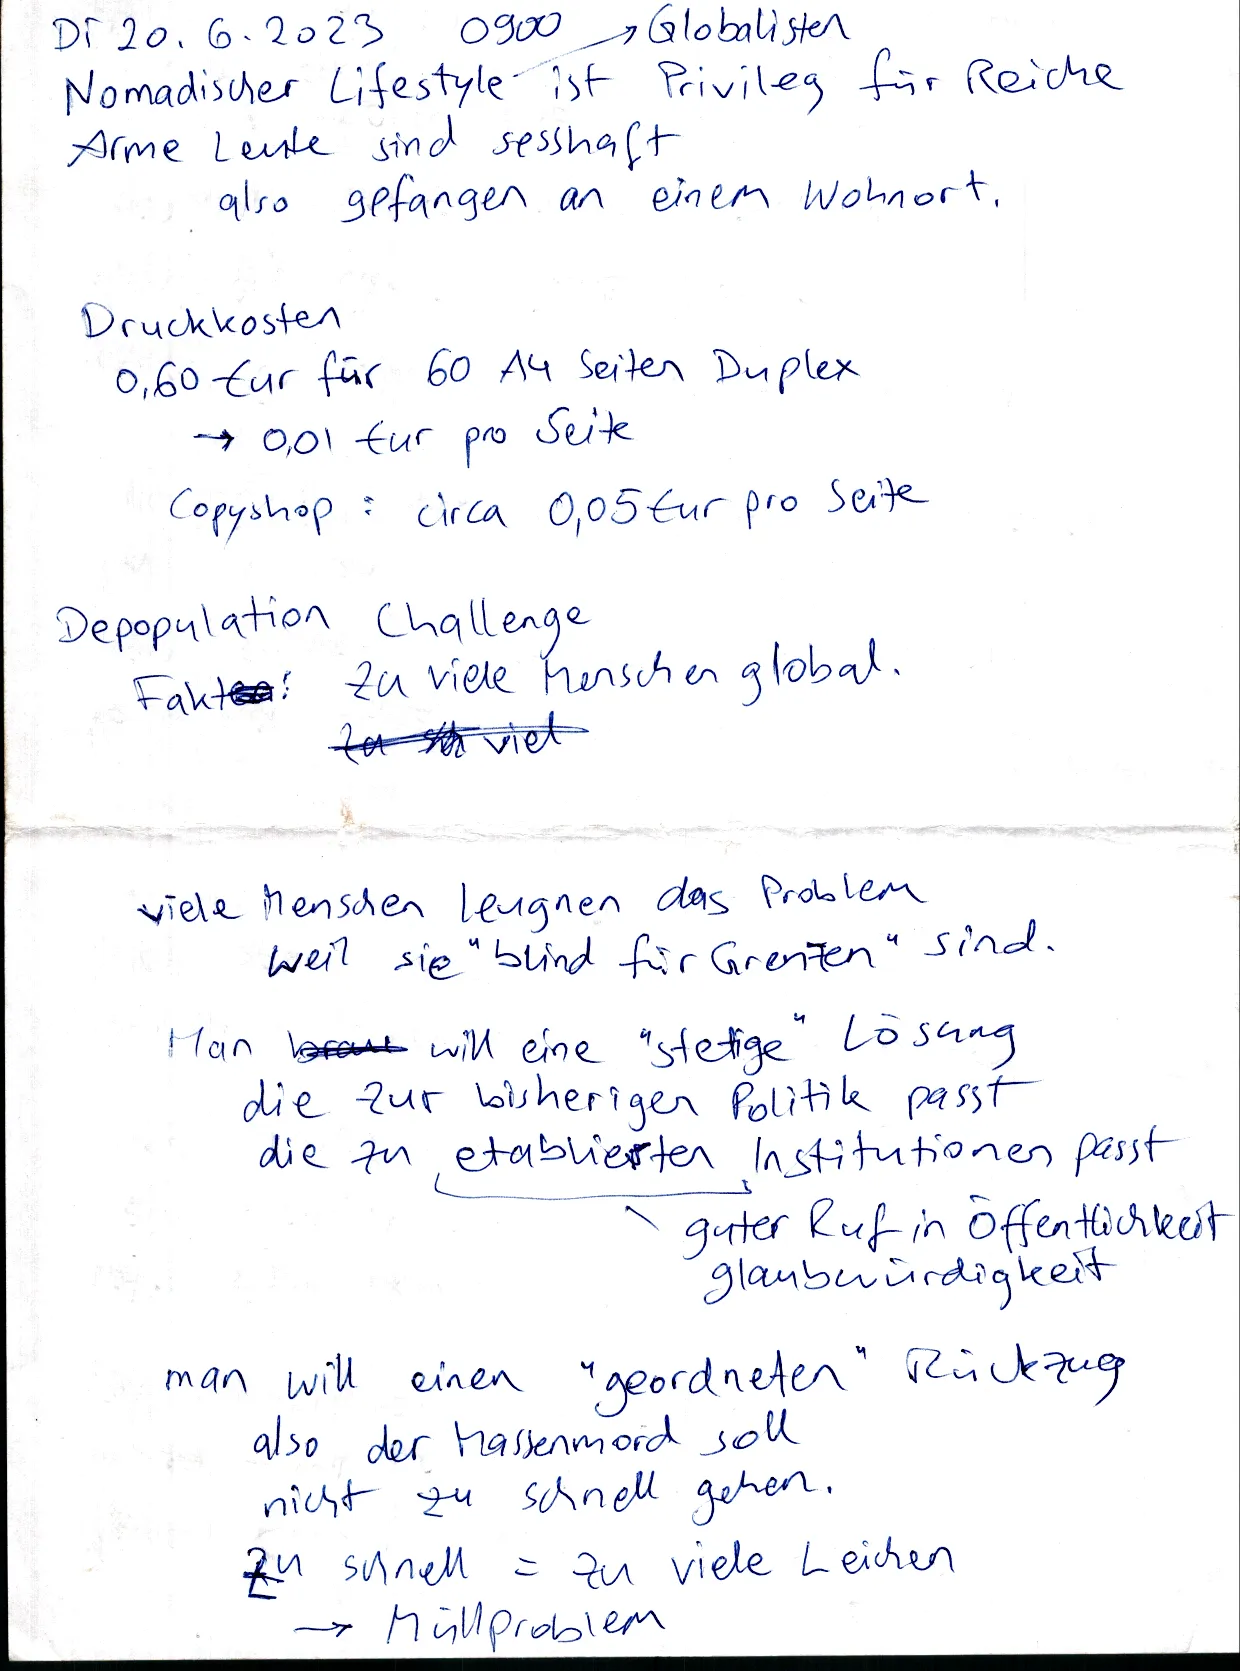 Di 20.6.2023 0900 → Globalisten
Nomadischer Lifestyle ist Privileg für Reiche
Arme Leute sind sesshaft
also gefangen an einem Wohnort.
Druckkosten
0,60 Eur für 60 A4 Seiten Duplex
→ 0,01 Eur pro Seite
Copyshop : circa 0,05 Eur pro Seite
Depopulation Challenge
Fakt: Zu viele Menschen global.
Zu viel
viele Menschen leugnen das Problem
weil sie "blind für Grenzen" sind.
Man will eine "stetige" Lösung
die zur bisherigen Politik passt
die zu etablierten Institutionen passt
guter Ruf in Öffentlichkeit
glaubwürdigkeit
man will einen "geordneten" Rückzug
also der Massenmord soll
nicht zu schnell gehen.
Zu schnell = zu viele Leichen
→ Müllproblem